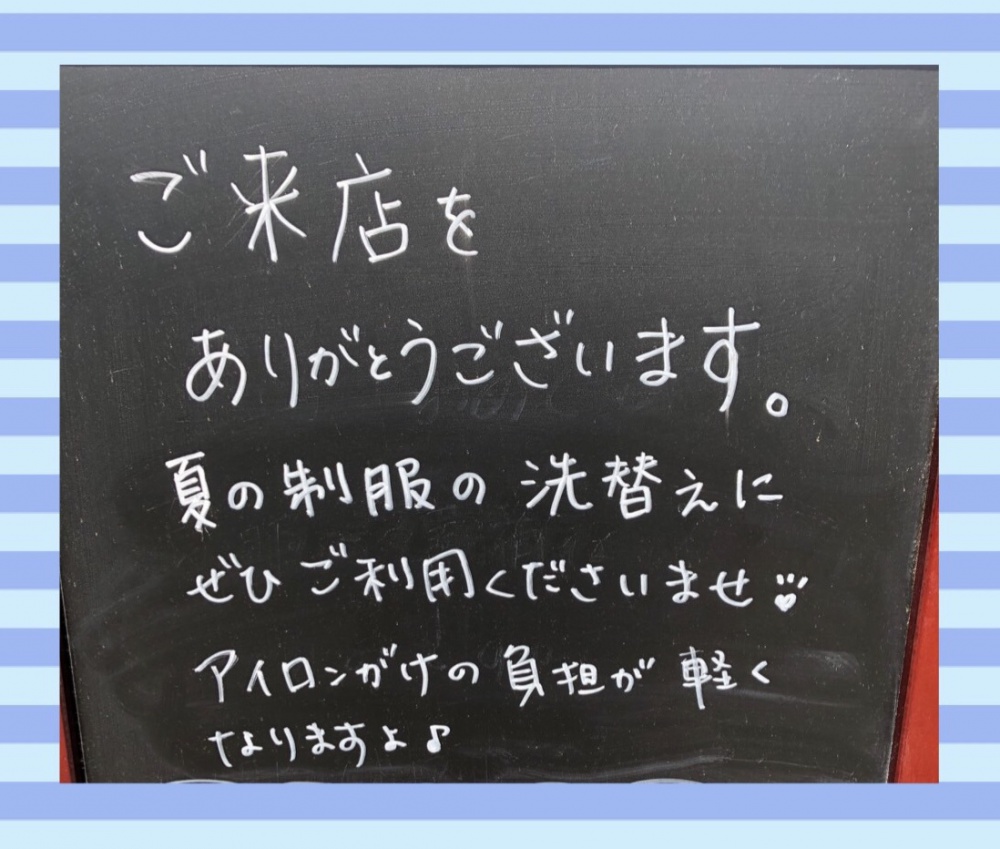 ご来店を
ありがとうございます。
夏の制服の洗替えに
ぜひご利用くださいませ
アイロンがけの負担が軽く
なりますよ♪